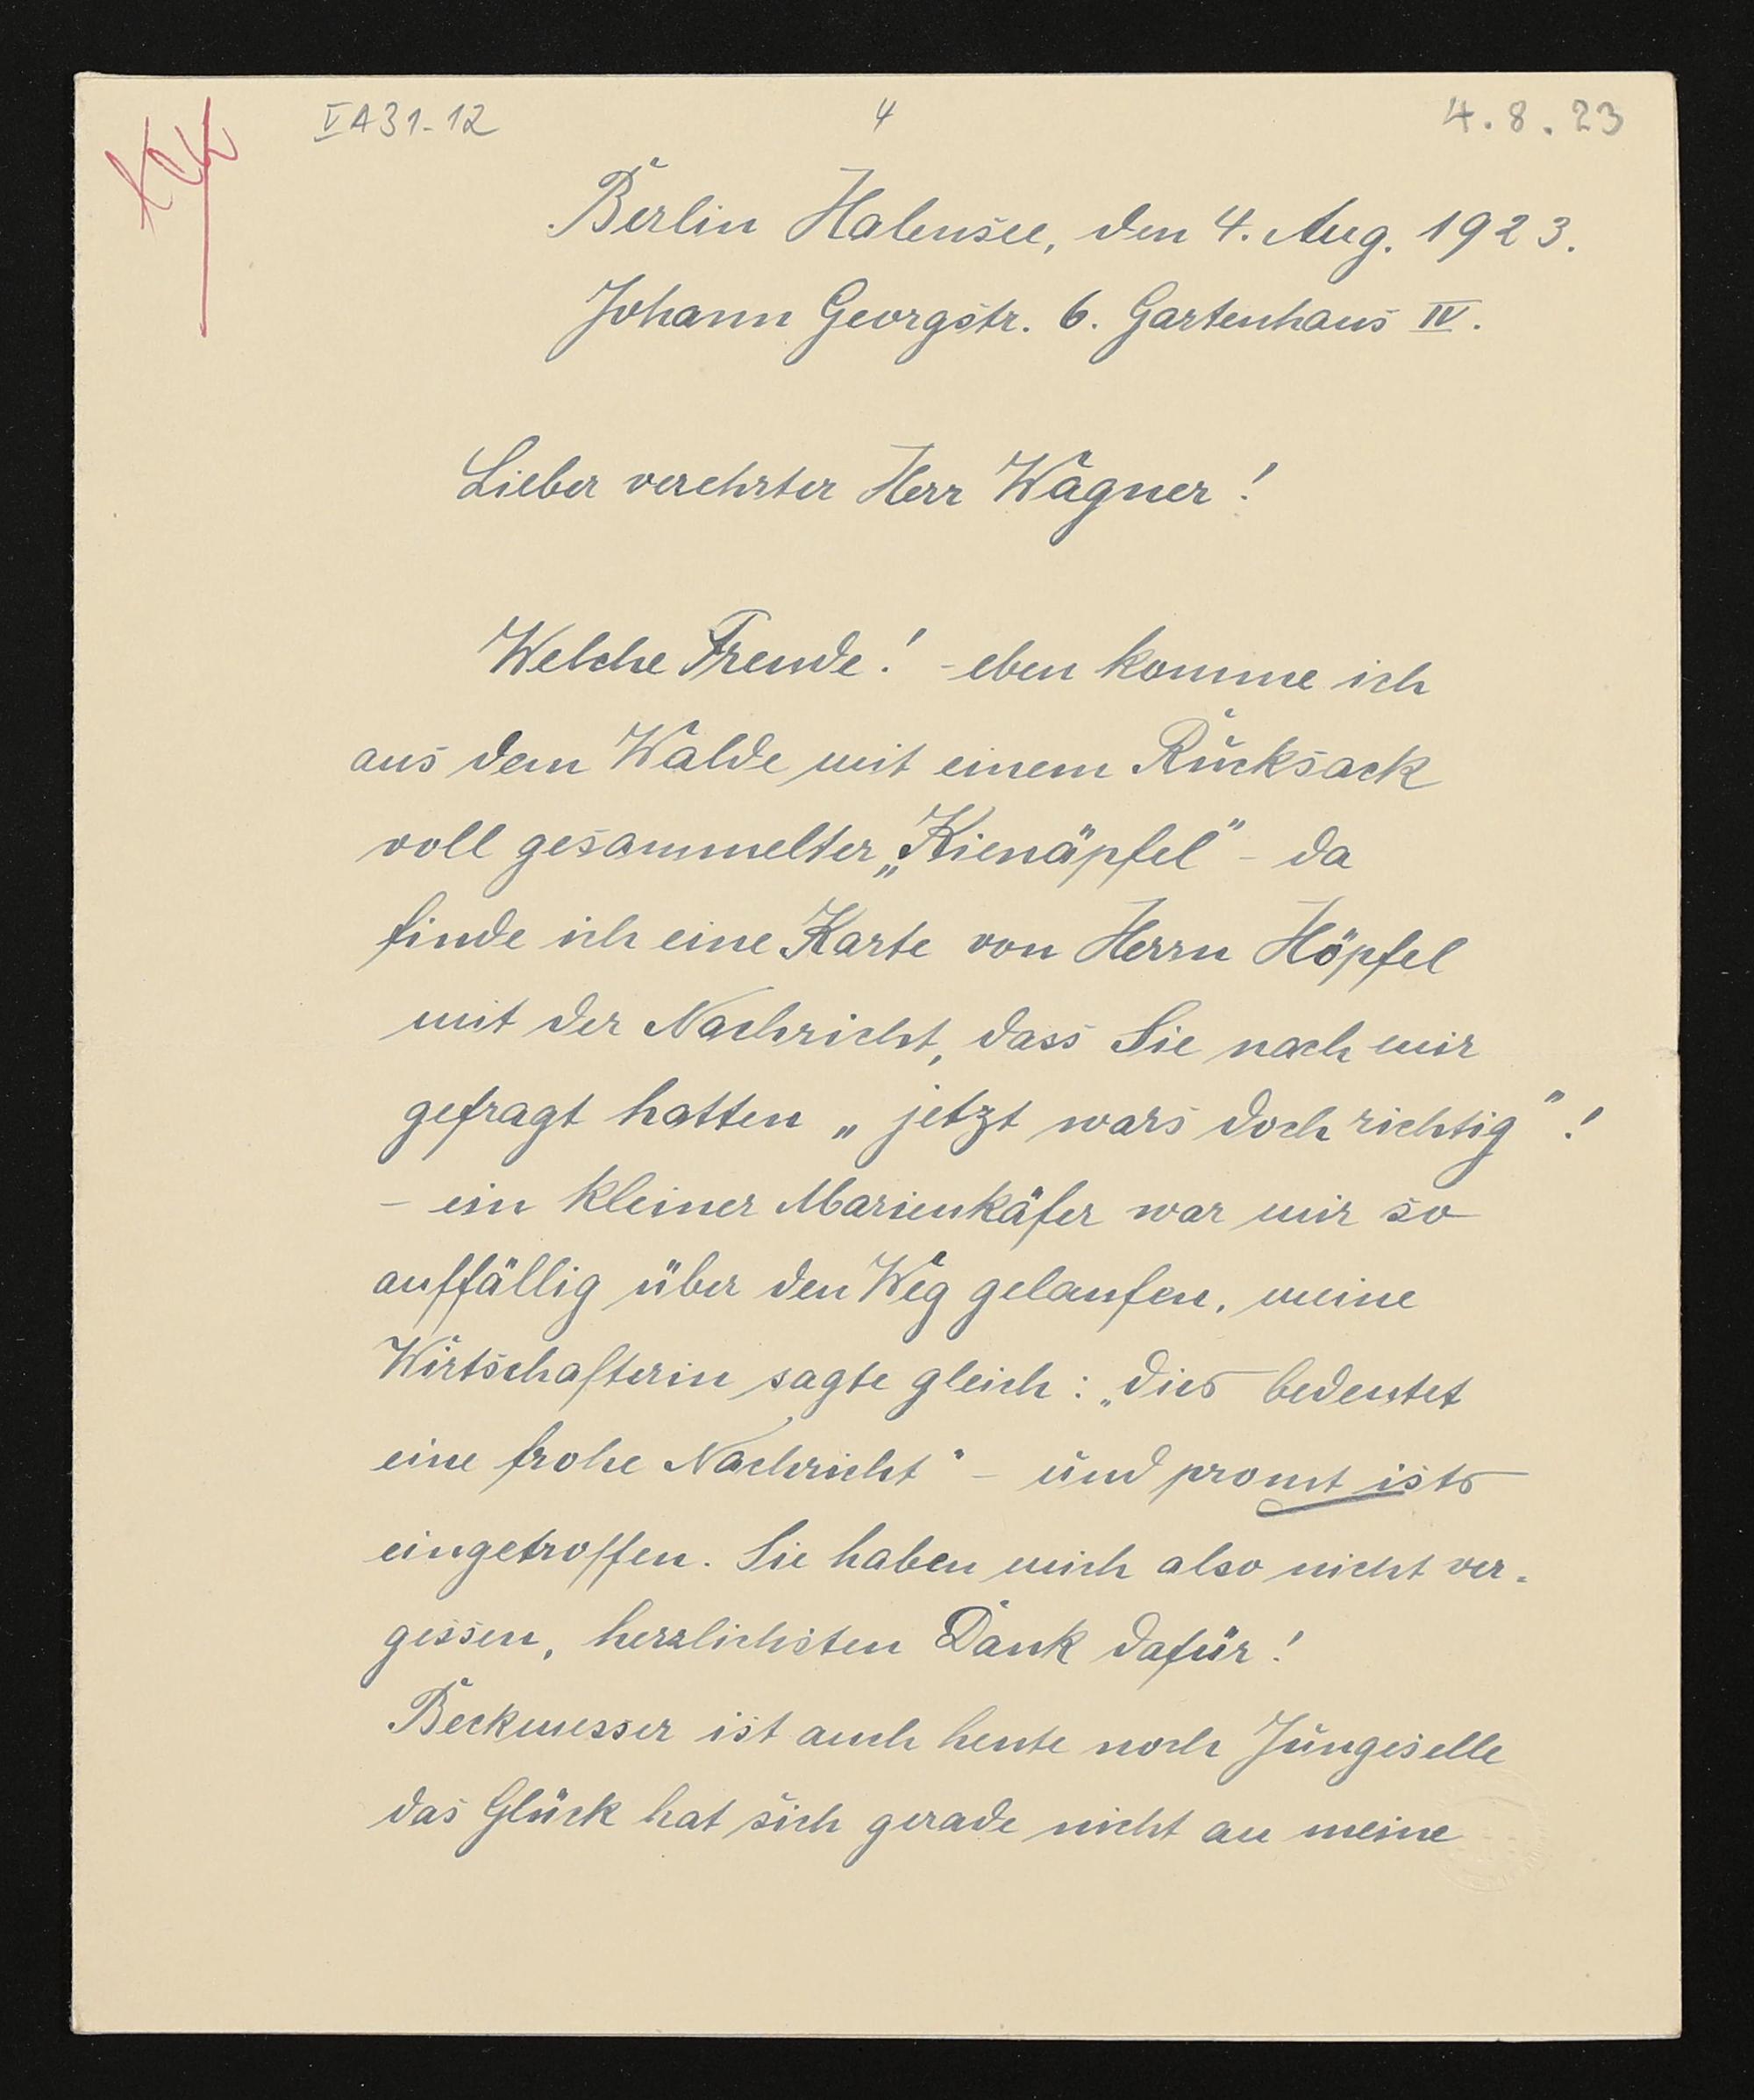 V A 31-12
4
4.8.23
Berlin Halensee, den 4. Aug. 1923.
Johann Georgstr. 6. Gartenhaus IV.
Lieber verehrter Herr Wagner!
Welche Freude! - eben komme ich
aus dem Walde mit einem Rucksack
voll gesammelter „Kienäpfel" - da
finde ich eine Karte von Herrn Höpfel
mit der Nachricht, dass Sie nach mir
gefragt hatten „jetzt wars doch richtig"!
- ein kleiner Marienkäfer war mir so
auffällig über den Weg gelaufen, meine
Wirtschafterin sagte gleich: „dies bedeutet
eine frohe Nachricht" - und promt ists
eingetroffen. Sie haben mich also nicht ver-
gessen, herzlichsten Dank dafür!
Beckmesser ist auch heute noch Jungeselle
das Glück hat sich gerade nicht an meine